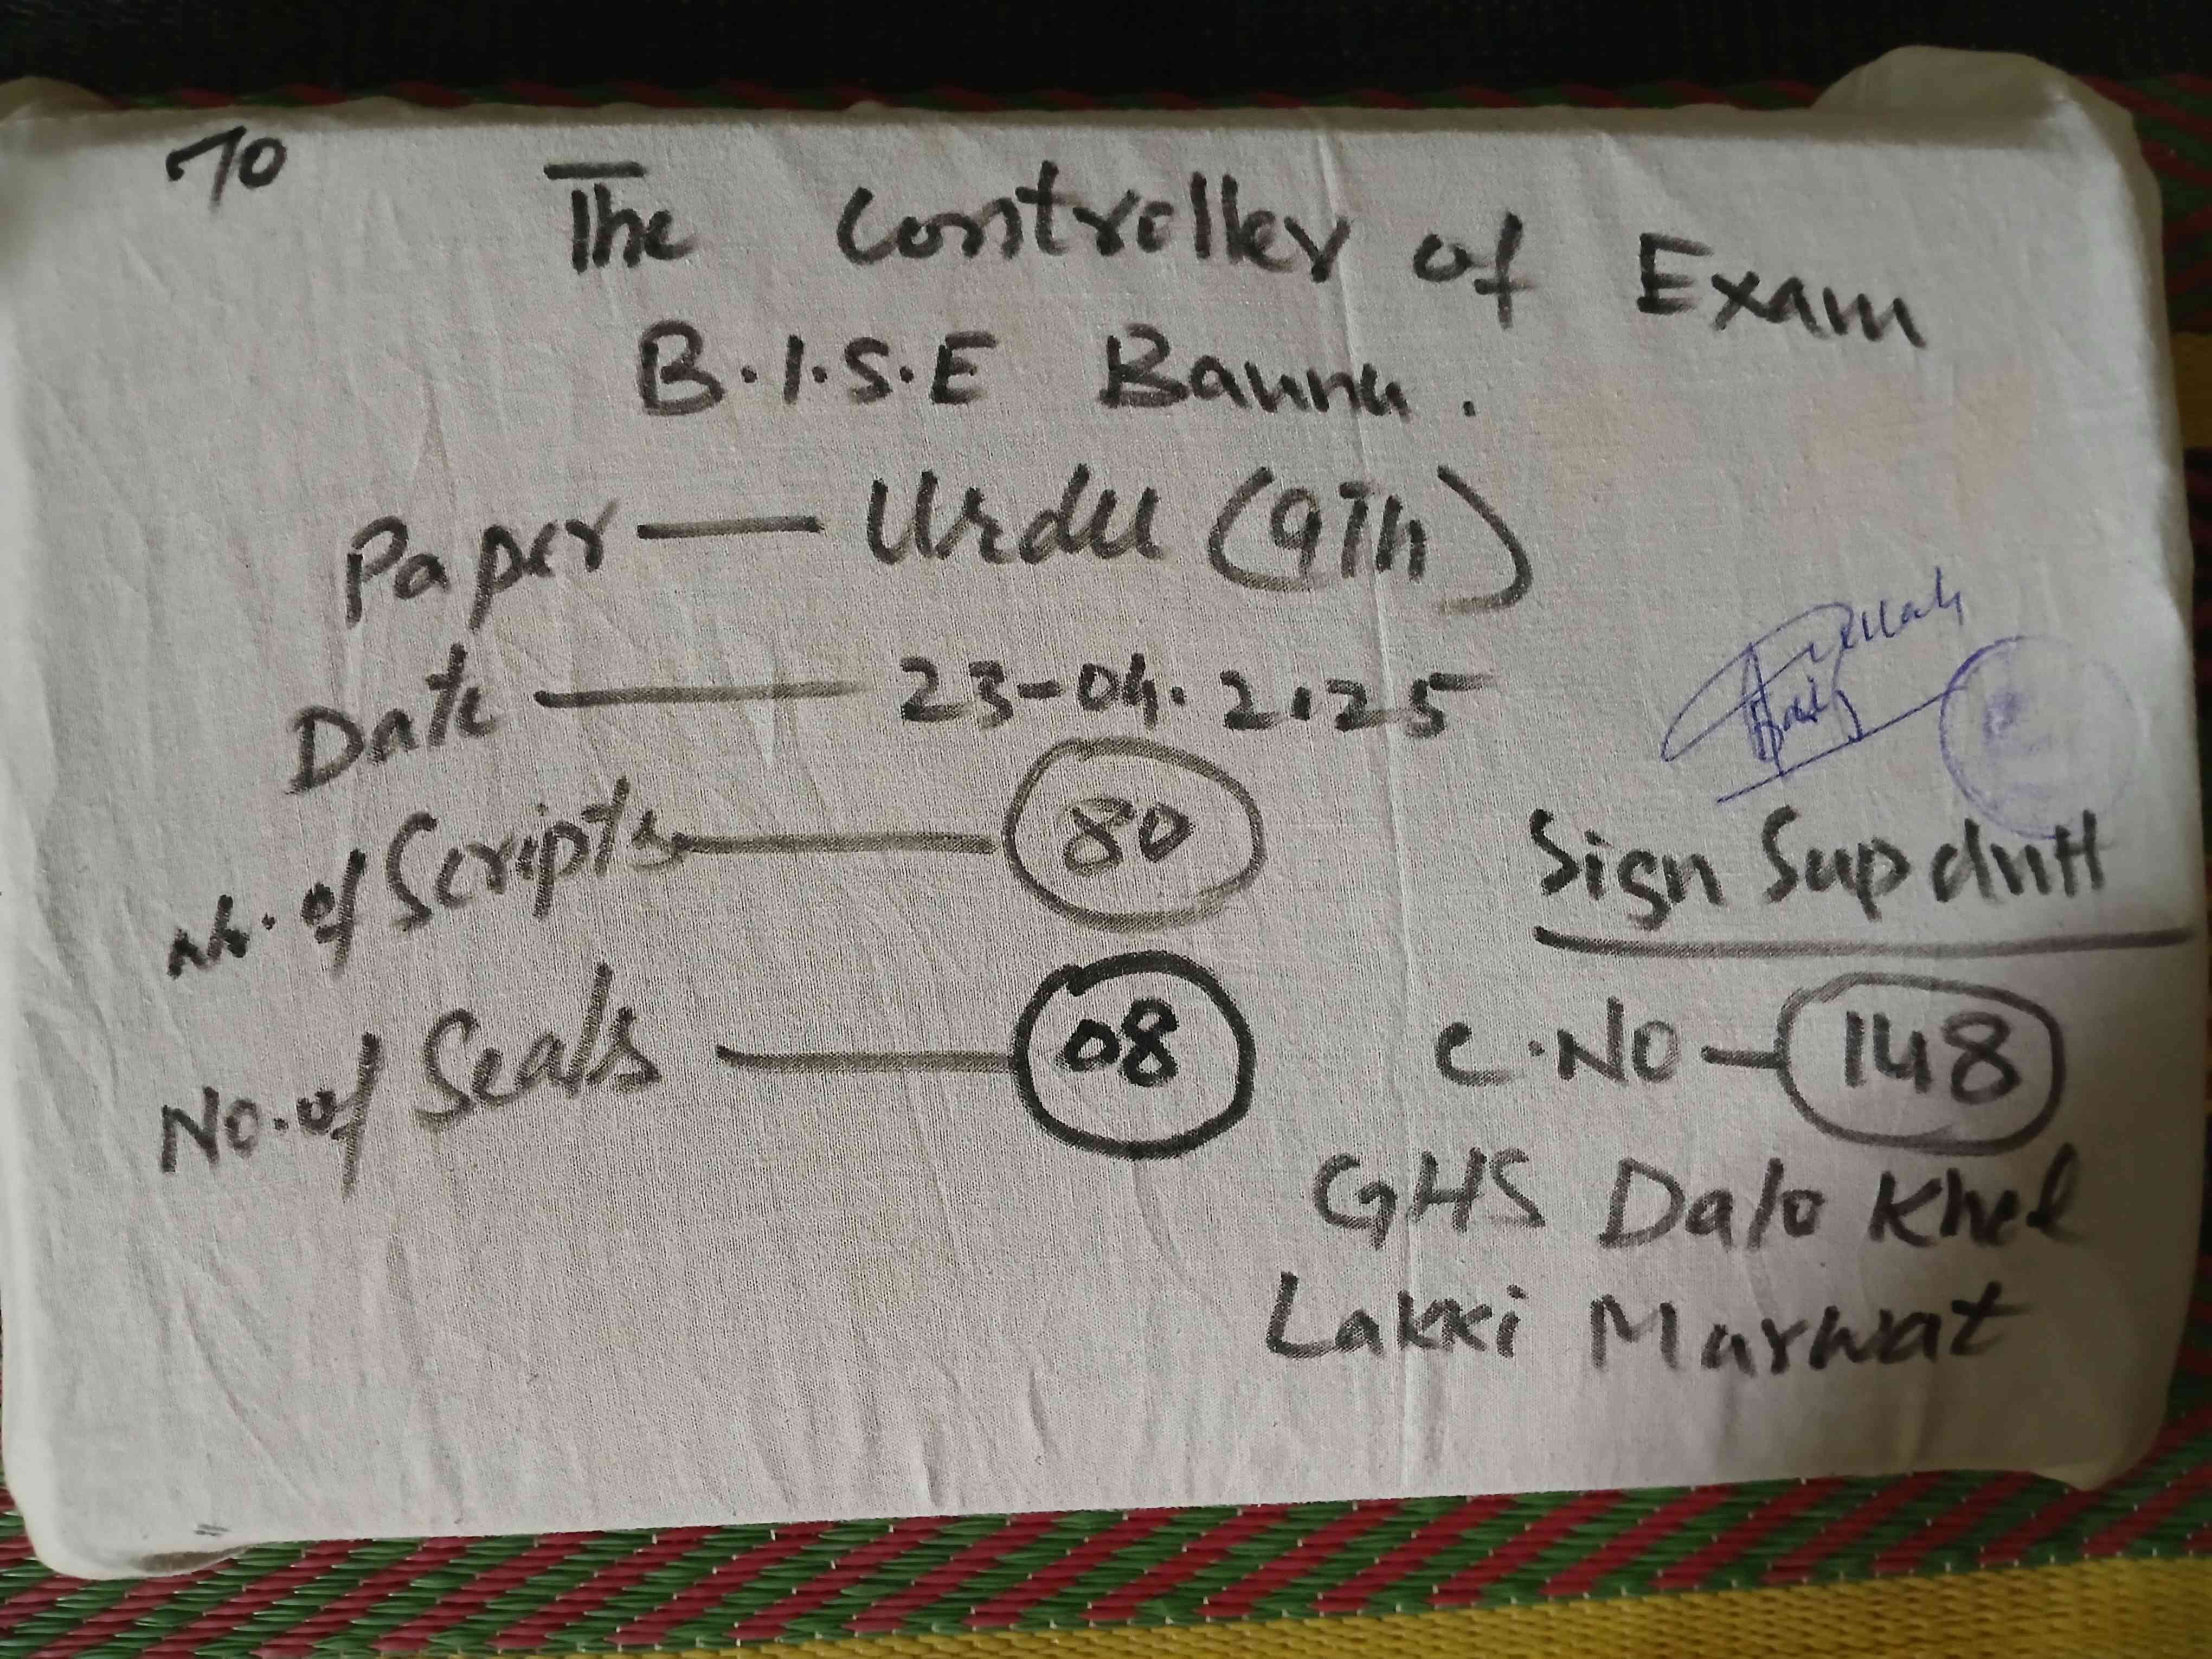 To
The Controller of Exam
B.I.S.E Bannu.
Paper — Urdu (9Th)
Date — 23-04.2025
No. of Scripts — 80
No. of Seals — 08
Sign Supdntt
C.No — 148
GHS Dalo Khel
Lakki Marwat